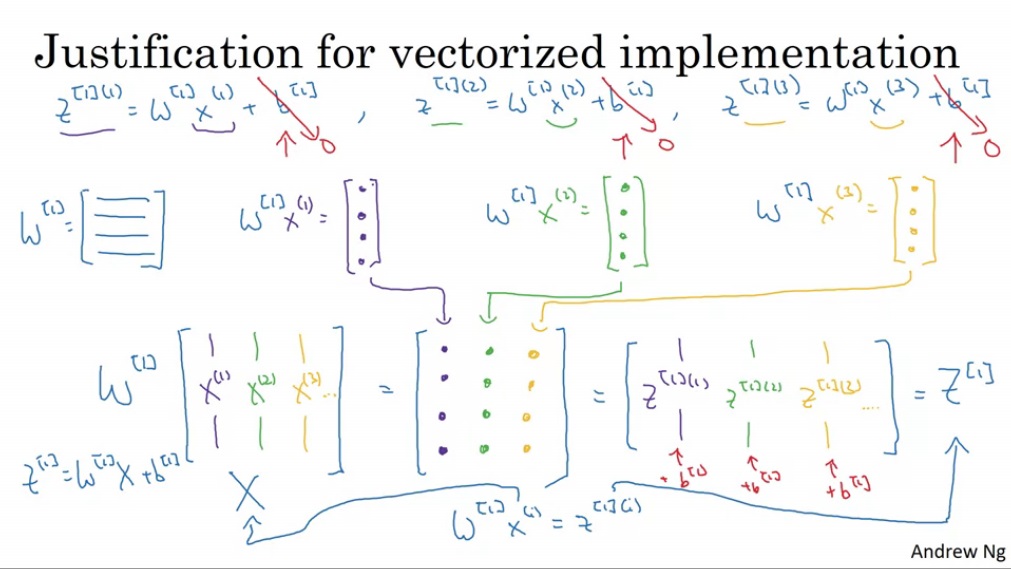 Justification for vectorized implementation
z^[1](1) = W^[1] x^(1) + b^[1] , z^[1](2) = W^[1] x^(2) + b^[1] , z^[1](3) = W^[1] x^(3) + b^[1]
↑ 0 ↑ 0 ↑ 0
W^[1] = [ ] W^[1] x^(1) = [ ] W^[1] x^(2) = [ ] W^[1] x^(3) = [ ]
W^[1] [ x^(1) x^(2) x^(3) ... ] = [ ] = [ z^[1](1) z^[1](2) z^[1](3) .... ] = Z^[1]
+ b^[1] + b^[1] + b^[1]
Z^[1] = W^[1] X + b^[1]
X
W^[1] x^(i) = z^[1](i)
Andrew Ng